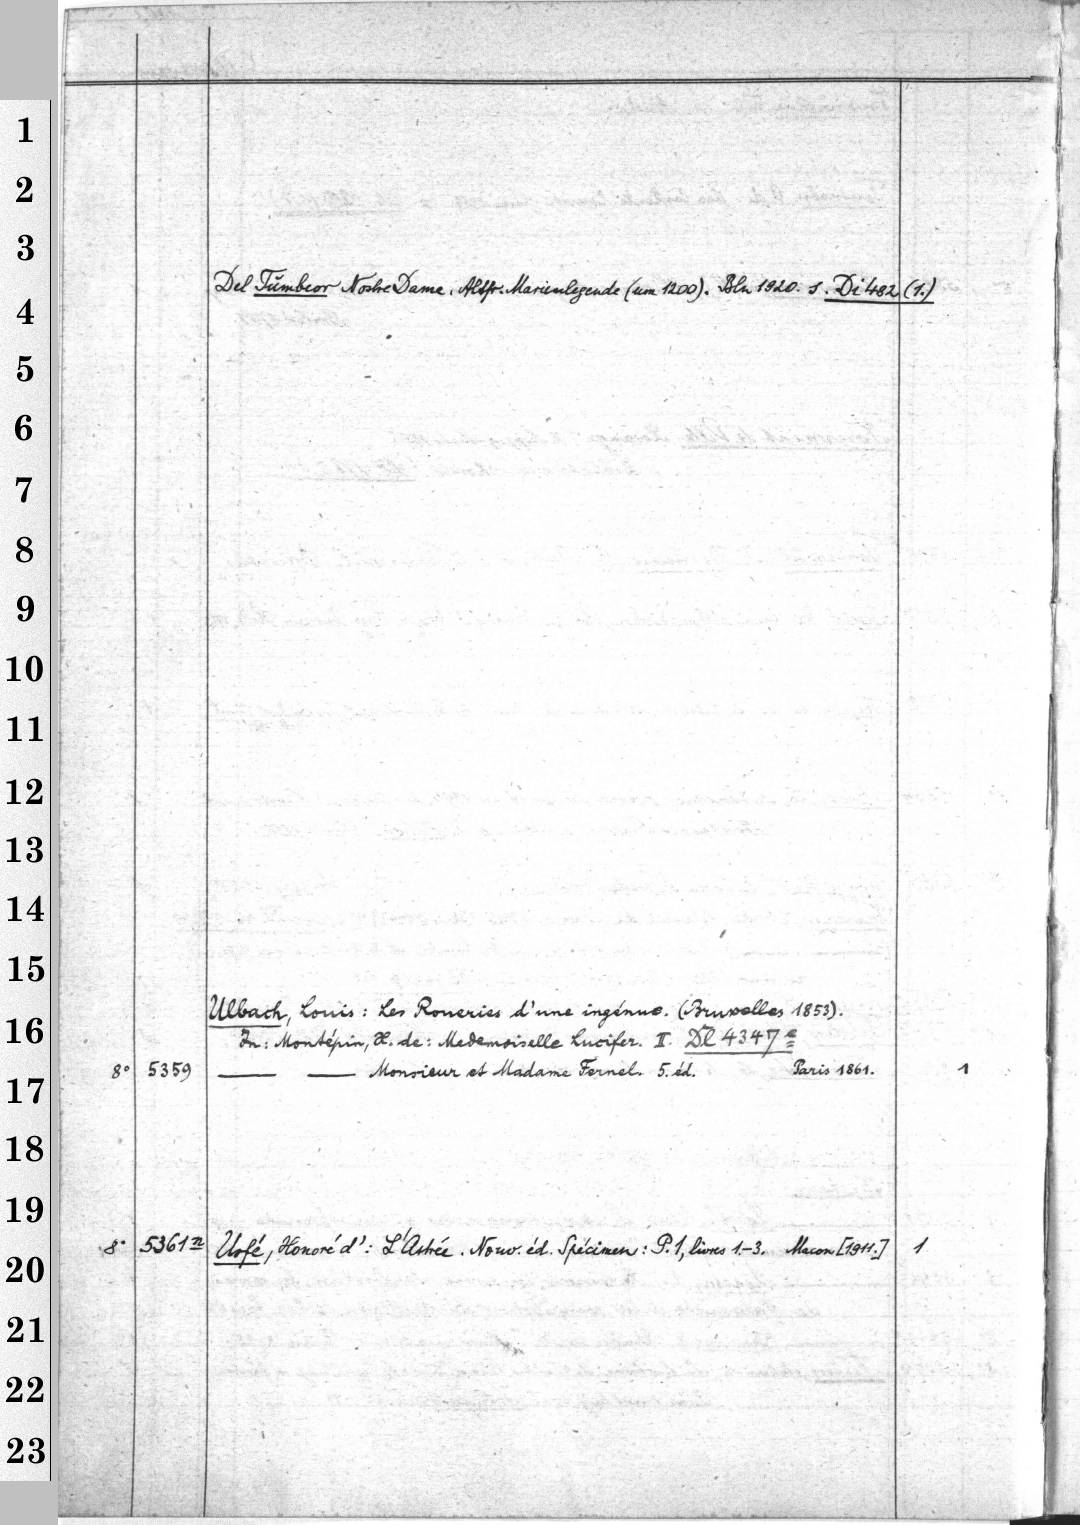 1
2
3
Del Tumbeor Nostre Dame. Altfr. Marienlegende (um 1200). Bln 1920. s. Di 482 (1.)
4
5
6
7
8
9
10
11
12
13
14
15
Ulbach, Louis: Les Roueries d'une ingénue. (Bruxelles 1853).
16
In: Montépin, X. de: Mademoiselle Lucifer. II. Dl 4347 e
8° 5359 — — Monsieur et Madame Fernel. 5. éd. Paris 1861. 1
17
18
19
8° 5361 n Urfé, Honoré d': L'Astrée. Nouv. éd. Spécimen: P. 1, livres 1.-3. Macon [1911.] 1
20
21
22
23